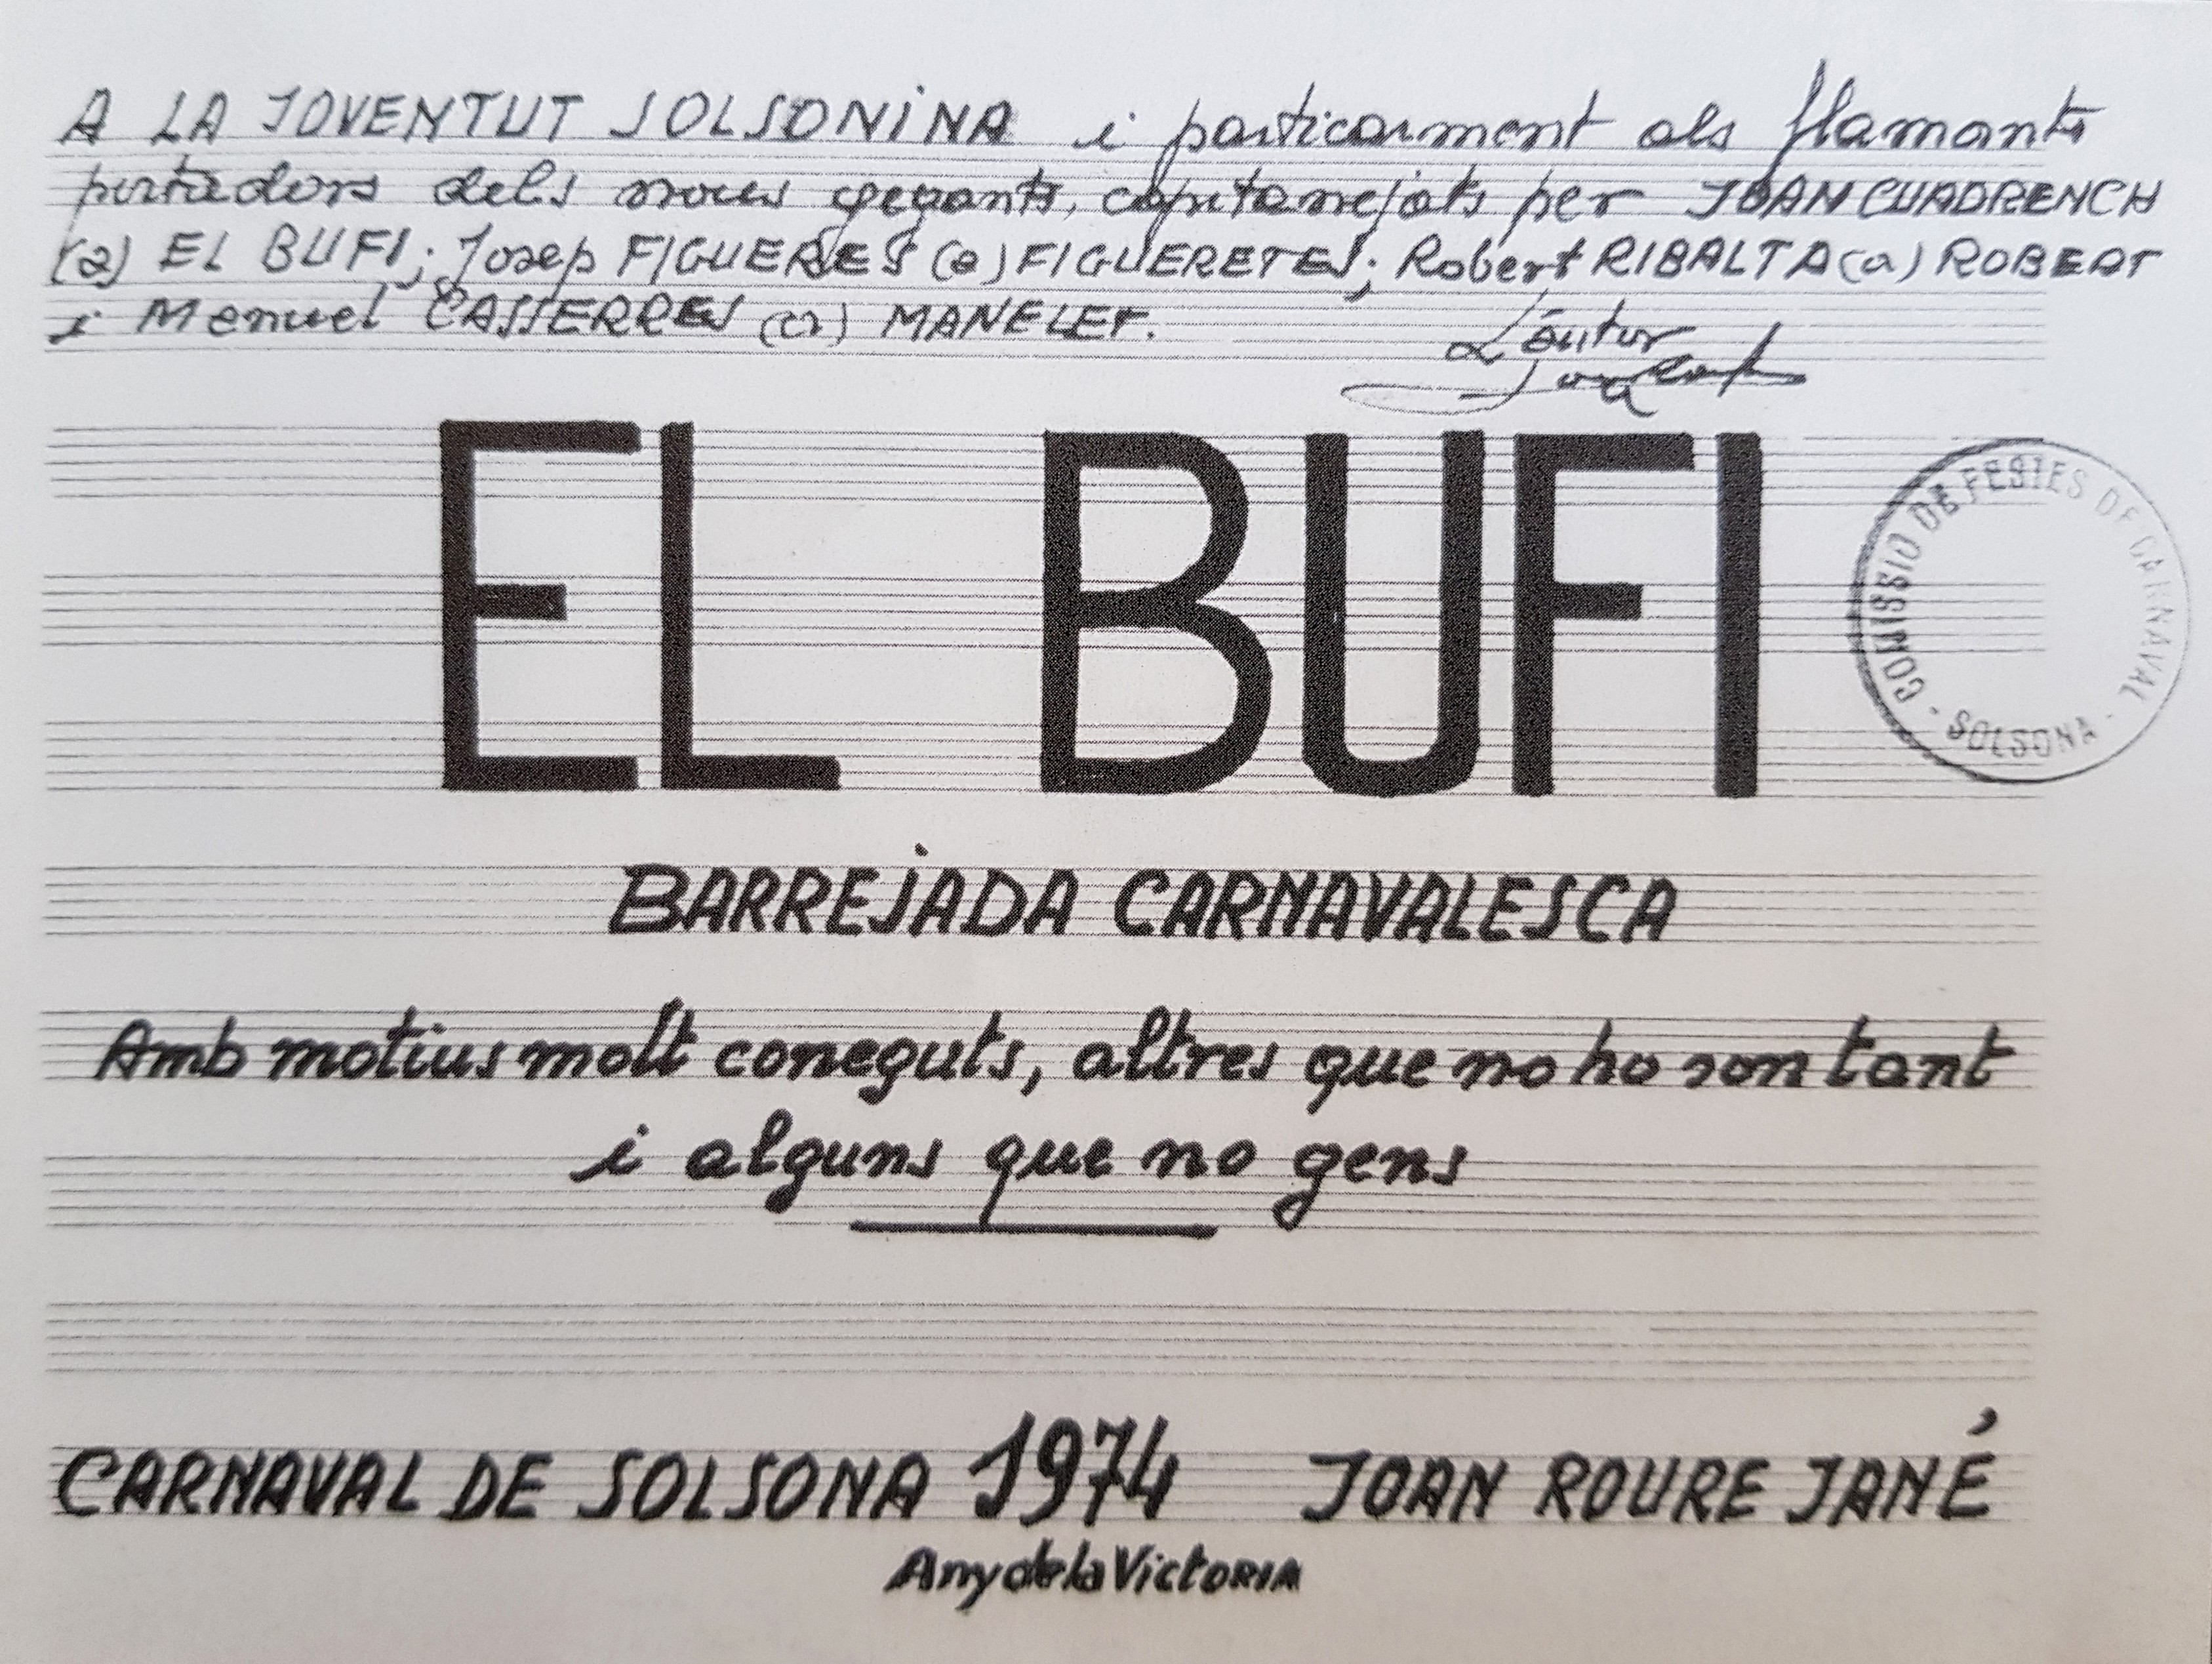 A LA JOVENTUT SOLSONINA i particarment als flamants
portadors dels nous gegants, capitanejats per JOAN CUADRENCH
(a) EL BUFI; Josep FIGUERES (a) FIGUERETES; Robert RIBALTA (a) ROBERT
i Manuel CASSERRES (a) MANELET.
L'autor
EL BUFI
COMISSIO DE FESTES DE CARNAVAL - SOLSONA -
BARREJADA CARNAVALESCA
Amb motius molt coneguts, altres que no ho son tant
i alguns que no gens
CARNAVAL DE SOLSONA 1974 JOAN ROURE JANÉ
Any de la VictORIA